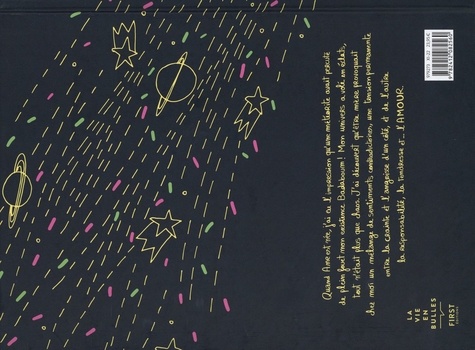 Quand Anne est née, j'ai eu l'impression qu'une météorite avait percuté
de plein fouet mon existence. Badaboum ! Mon univers a volé en éclats,
tout n'était plus que chaos. J'ai découvert qu'être mère provoquait
chez moi un mélange de sentiments contradictoires, une tension permanente
entre la crainte et l'angoisse d'un côté, et de l'autre
la responsabilité, la tendresse et... l'AMOUR.
LA
VIE
EN
BULLES
FIRST